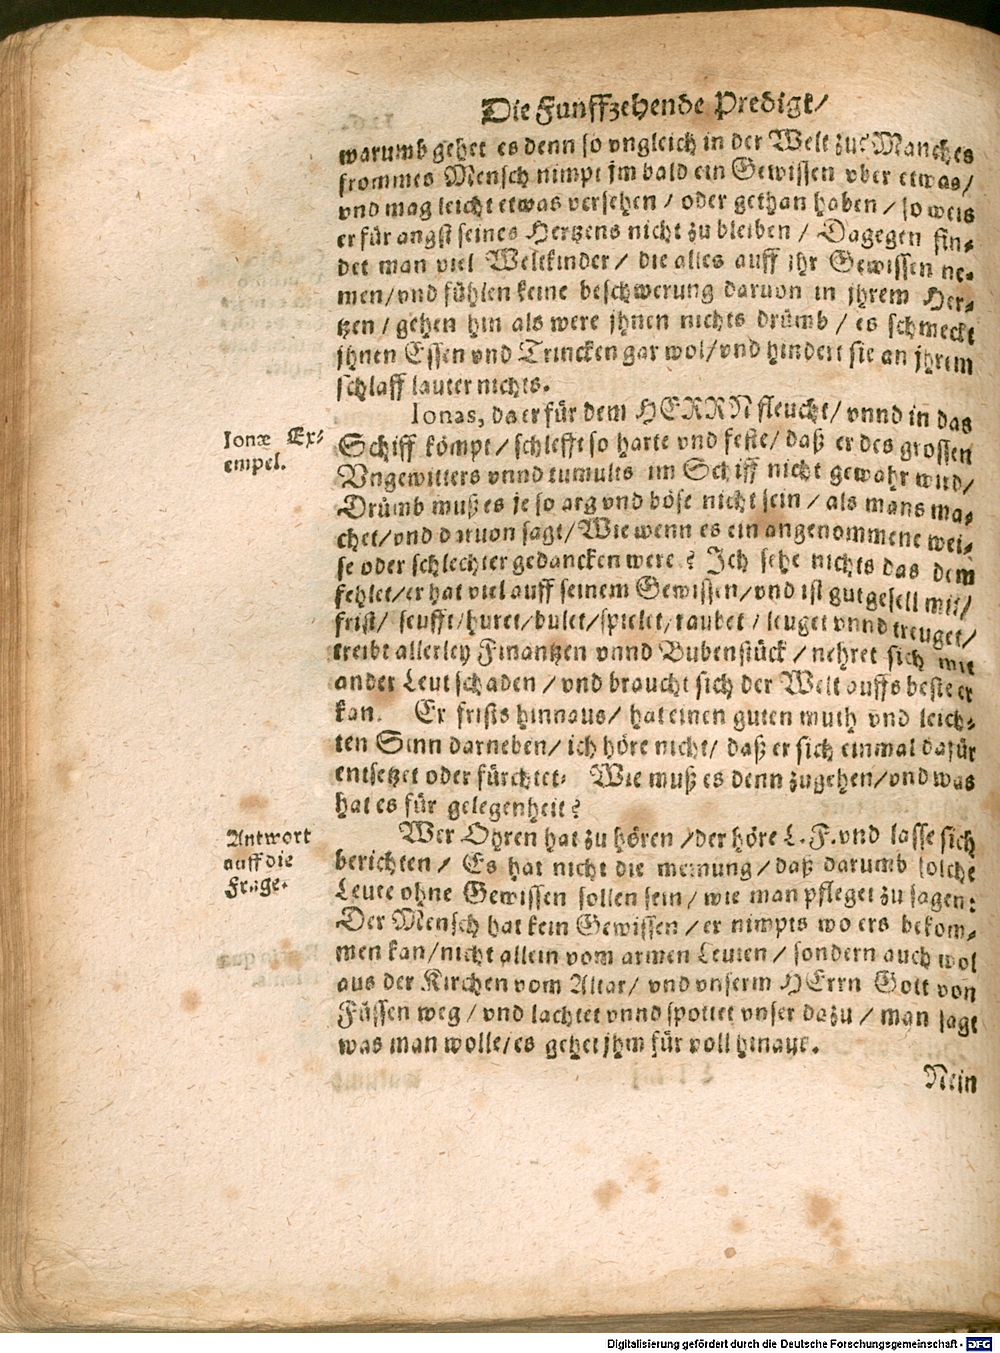 Die Funffzehende Predigt/
warumb gehet es denn so vngleich in der Welt zu? Manches
frommes Mensch nimpt jm bald ein Gewissen vber etwas/
vnd mag leicht etwas versehen / oder gethan haben / so weis
er für angst seines Hertzens nicht zu bleiben / Dagegen fin-
det man viel Weltkinder / die alles auff ihr Gewissen ne-
men/vnd fühlen keine beschwerung daruon in jhrem Her-
tzen / gehen hin als were jhnen nichts drümb / es schmeckt
jhnen Essen vnd Trincken gar wol/vnd hindert sie an jhrem
schlaff lauter nichts.
Ionas, da er für dem HERRN fleucht/ vnnd in das
Ionæ Ex-
empel.
Schiff kömpt/ schlefft so harte vnd feste/ daß er des grossen
Vngewitters vnnd tumults im Schiff nicht gewahr wird/
Drümb muß es je so arg vnd böse nicht sein / als mans ma-
chet/vnd daruon sagt/Wie wenn es ein angenommene wei-
se oder schlechter gedancken were? Ich sehe nichts das dem
fehlet/er hat viel auff seinem Gewissen/vnd ist gut gesell mit/
frist/ seufft/huret/bulet/spielet/raubet / leuget vnnd treuget/
treibt allerley Finantzen vnnd Bubenstück / nehret sich mit
ander Leut schaden / vnd braucht sich der Welt auffs beste er
kan. Er frists hinnaus/ hat einen guten muth vnd leich-
ten Sinn darneben/ ich höre nicht/ daß er sich einmal dafür
entsetzet oder fürchtet. Wie muß es denn zugehen/vnd was
hat es für gelegenheit?
Antwort
auff die
Frage.
Wer Ohren hat zu hören /der höre L. F. vnd lasse sich
berichten / Es hat nicht die meinung / daß darumb solche
Leute ohne Gewissen sollen sein / wie man pfleget zu sagen:
Der Mensch hat kein Gewissen / er nimpts wo ers bekom-
men kan/nicht allein vom armen Leuten / sondern auch wol
aus der Kirchen vom Altar/ vnd vnserm HErrn Gott von
Füssen weg / vnd lachtet vnnd spottet vnser dazu / man sagt
was man wolle/es gehet jhm für voll hinaus.
Nein
Digitalisierung gefördert durch die Deutsche Forschungsgemeinschaft - DFG